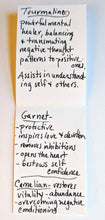 Tourmaline-
powerful mental
healer, balancing
& transmuting
negative thought
patterns to positive
ones.
Assists in understand-
ing self & others.
Garnet-
- protective
- inspires love & devotion
- removes inhibitions
- opens the heart
- bestows self
confidence
Carnelian- restores
vitality - abundance
- overcoming negative
conditioning